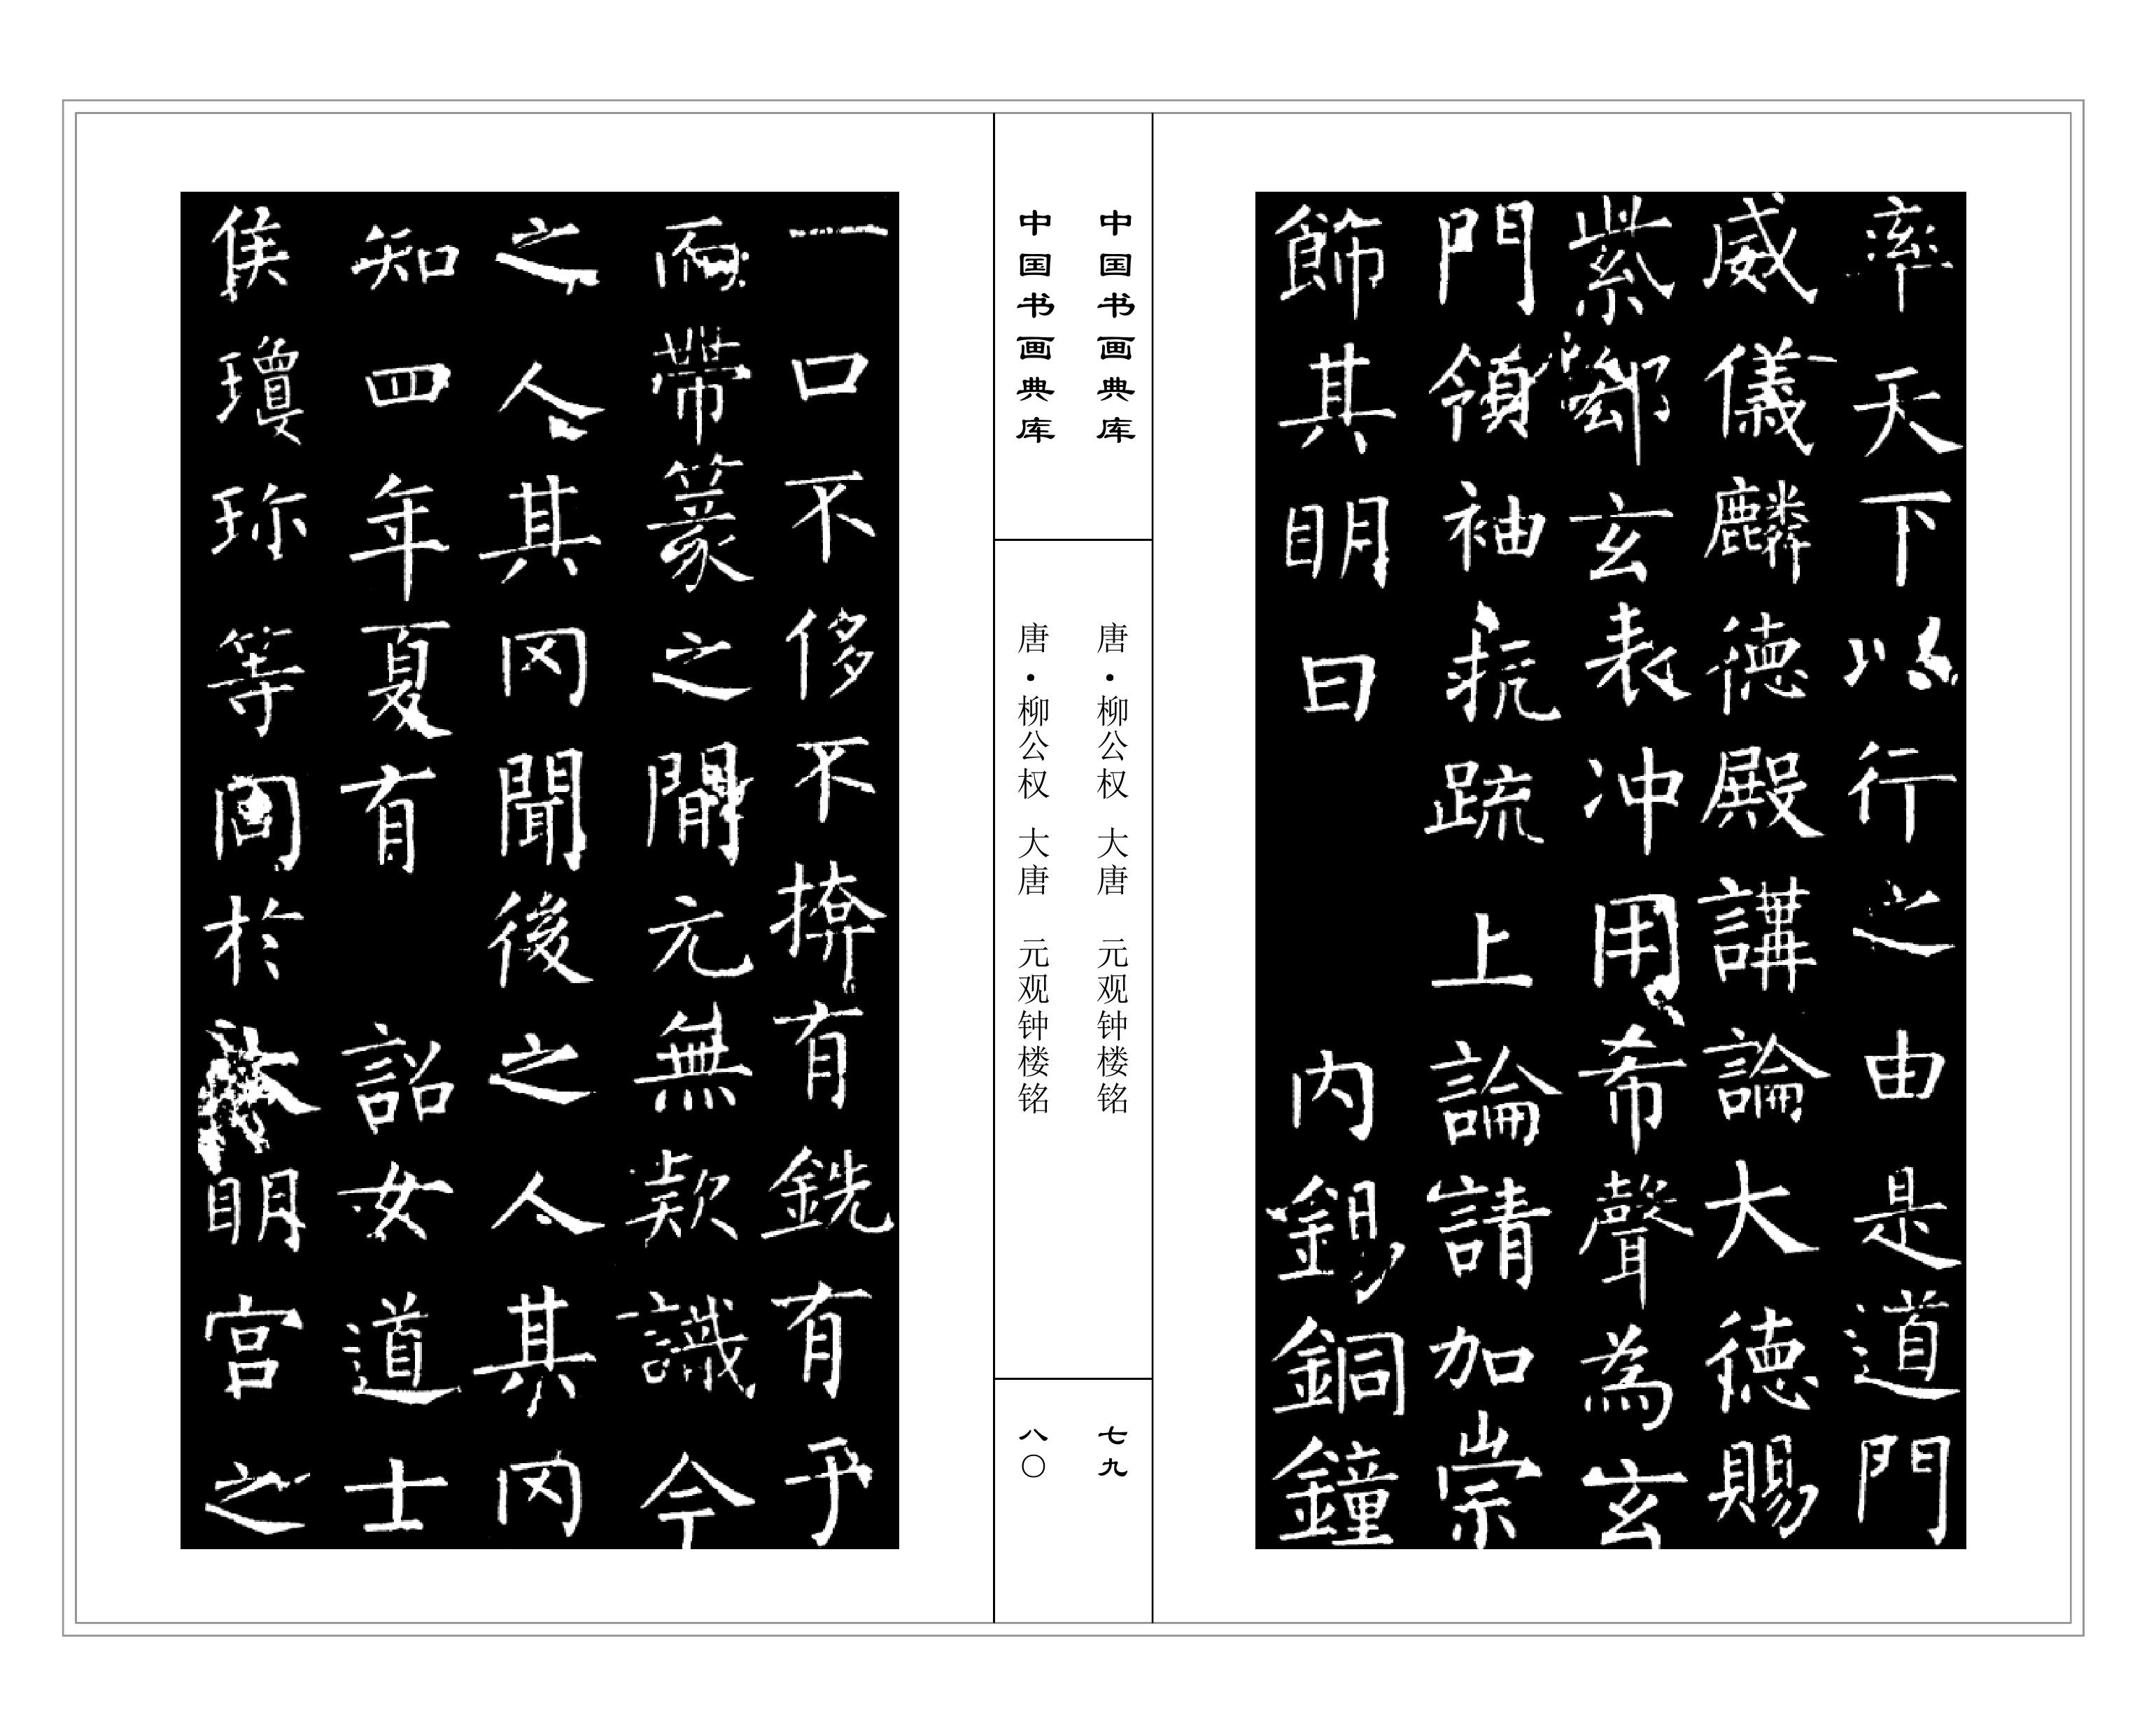 率天下以行之由是道門
威儀麟德殿講論大德賜
紫鄒玄表冲用希聲為玄
門領袖抗疏上論請加崇
飾其明曰内錫銅鐘
中国书画典库
唐·柳公权 大唐 元观钟楼铭
七九
中国书画典库
唐·柳公权 大唐 元观钟楼铭
八〇
一口不侈不揜有銑有于
而帶篆之間元無款識今
之人其罔聞後之人其罔
知四年夏有詔女道士
侯瓊珎等同於明宫之